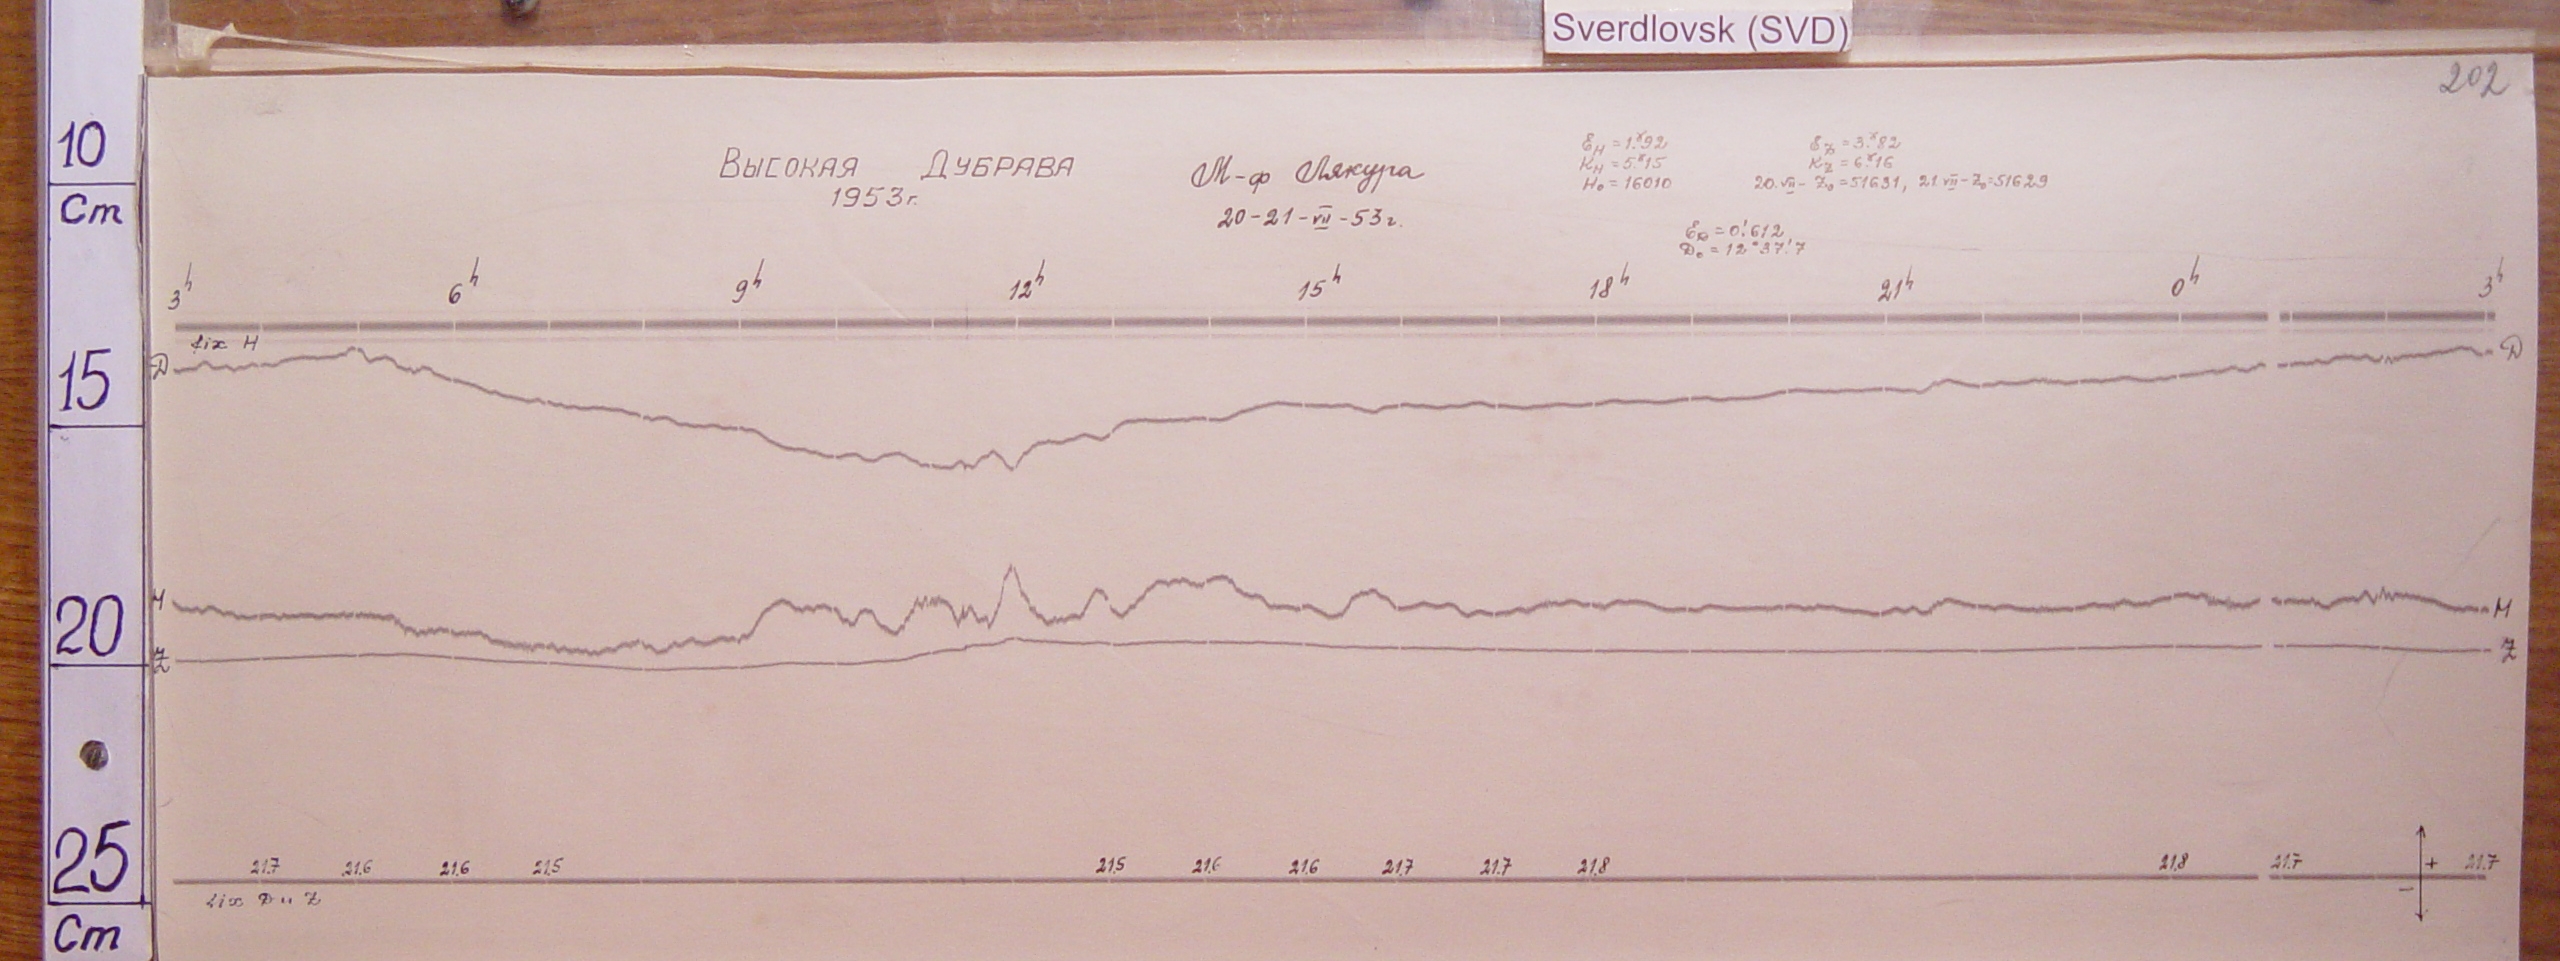 Sverdlovsk (SVD)
202
10
Cm
15
20
25
Cm
Высокая Дубрава
1953г.
М-ф Лякура
20-21-VII-53г.
Ɛн = 1.ˠ92
Kн = 5.ˠ15
H₀ = 16010
Ɛz = 3.ˠ82
Kz = 6.ˠ16
20.VII- Z₀ = 51631, 21.VII-Z₀=51629
ƐD = 0.'612
D₀ = 12°37.'7
3h 6h 9h 12h 15h 18h 21h 0h 3h
fix H
D D
H H
Z Z
21.7 21.6 21.6 21.5 21.5 21.6 21.6 21.7 21.7 21.8 21.8 21.7 21.7
+
−
fix D и Z